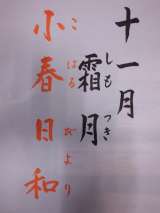 十一月
霜月
しもつき
小春日和
こはるびより